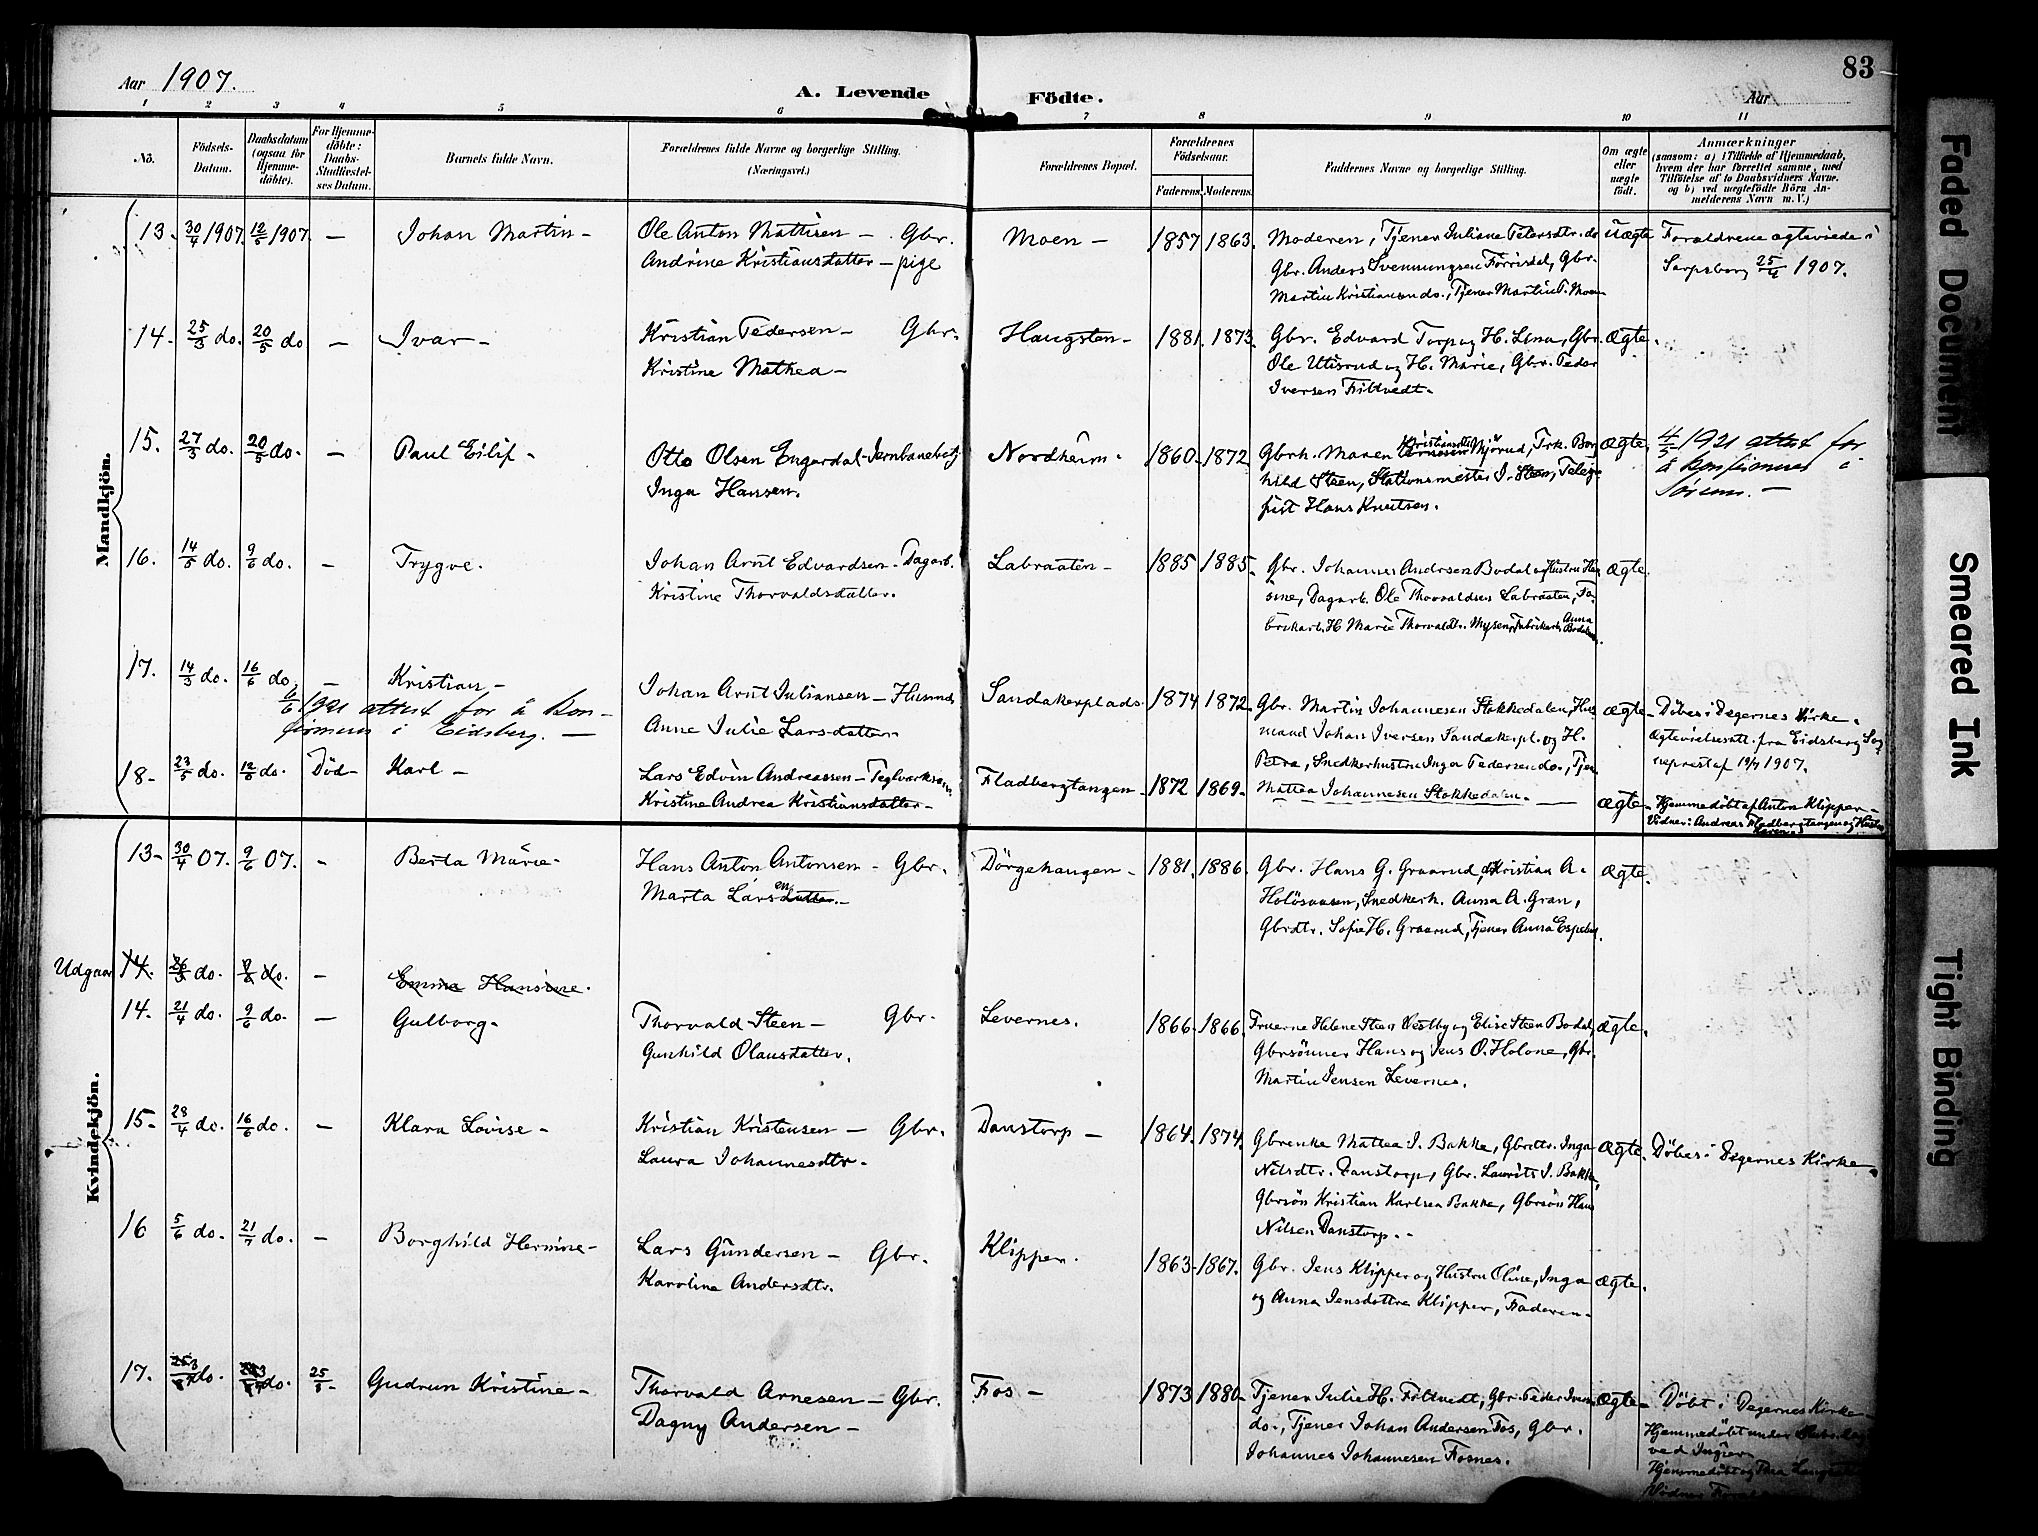 Aar 1907.
A. Levende Födte.
Aar
83
1 2 3 4 5 6 7 8 9 10 11
No.
Födsels-Datum.
Daabsdatum (ogsaa for Hjemme-döbte).
For Hjemme-döbte: Daabs-Stadfæstel-ses Datum.
Barnets fulde Navn.
Forældrenes fulde Navne og borgerlige Stilling. (Næringsvei.)
Forældrenes Bopæl.
Forældrenes Födselsaar.
Faderens. Moderens.
Faddernes Navne og borgerlige Stilling.
Om ægte eller uægte födt.
Anmærkninger
(saasom: a) i Tilfælde af Hjemmedaab,
hvem der har forrettet samme, med
Tilföielse af to Daabsvidners Navne.
og b) ved uægtefödte Börn An-
melderens Navn m. V.)
Mandkjön.
13. 30/4 1907. 12/5 1907. – Johan Martin – Ole Anton Mattisen – Gbr. Moen – 1857 1863. Moderen, Tjener Juliane Petersdtr. do Uægte Forældrene ægteviede i
Andrine Kristiansdatter – pige Gbr. Anders Svennungsen Förrisdal, Gbr. Sarpsborg 25/4 1907.
Martin Kristiansen do., Tjener Martin T. Moen
14. 25/3 do. 20/5 do – Ivar – Kristian Pedersen – Gbr. Haugsten – 1881. 1873. Gbr. Edvard Torp og H. Lina, Gbr. Ægte.
Kristine Mathea – Ole Utisrud og H. Marie, Gbr. Peder
Iversen Filtvedt.
15. 27/3 do. 20/5 do. – Paul Eilif – Otto Olsen Engerdal – Jernbanebetj. Nordheim – 1860. 1872 Gbrh. Maren Kristiansdtr. Mjörud, Frk. Bor Ægte. 4/5 1921 attest for
Inga Hansen. hild Steen, Stationsmester J. Steen, Telegr. å konfirmeres i
fist Hans Knutsen. Sörum. –
16. 14/5 do. 9/6 do. – Trygve. Johan Arnt Edvardsen – Dagarb. Labraaten – 1885 1885. Gbr. Johannes Andersen Bodal og Hustru Han Ægte.
Kristine Thorvaldsdatter. sine, Dagarb. Ole Thorvaldsen Labraaten, Fa-
brikarb. H. Marie Thorvaldtr. Mysen, Fabrikarb. Anna Bodal
17. 14/3 do. 16/6 do. – Kristian – Johan Arnt Juliansen – Husmd Sandakerplads 1874 1872. Gbr. Martin Johannesen Stokkedalen, Hus Ægte. Döbes i Degernes Kirke.
6/6 1921 attest for å kon-
firmeres i Eidsberg. –
Anne Julie Larsdatter. mand Johan Iversen Sandakerpl. og H. Ægtevielsesatt. fra Eidsberg Sog
Petra, Snedkerhustru Inga Pedersen do., Tjen. nepræst af 19/7 1907.
18. 23/5 do. 12/6 do. Död Karl – Lars Edvin Andreassen – Teglverksarb. Fladbergtangen – 1872 1869. Mattea Johannesen Stokkedalen. Ægte. Hjemmedöbt af Anton Klipper.
Kristine Andrea Kristiansdatter – Vidner: Andreas Fladbergtangen og Hustru Karen.
Kvindekjön.
13. 30/4 07. 9/6 07. – Berta Marie – Hans Anton Antonsen – Gbr. Dörgehaugen – 1881. 1886. Gbr. Hans G. Graarud, Kristian A. Ægte.
Marta Larsen – Holösaasen, Snedkerh. Anna A. Gran,
Gbrdtr. Sofie H. Graarud, Tjener Anna Espeln.
Udgaar 14. 26/3 do. 9/6 do. – Emma Hansine.
14. 21/4 do. 9/6 do. – Gulborg. Thorvald Steen – Gbr. Levernes. 1866. 1866. Fruerne Helene Steen Vestby og Elise Steen Bodal, Ægte.
Gunhild Olausdatter. Gbrsönner Hans og Jens O. Holone, Gbr.
Martin Jensen Levernes.
15. 28/4 do. 16/6 do. – Klara Lovise – Kristian Kristensen – Gbr. Danstorp – 1864. 1874. Gbrenke Mattea J. Bakke, Gbrdtr. Inga Ægte. Döbes i Degernes Kirke.
Laura Johannesdtr. Nilsdtr. Danstorp, Gbr. Laurits J. Bakke,
Gbrsön Kristian Karlsen Bakke, Gbrsön Hans
Nilsen Danstorp.
16 5/6 do. 21/7 do. – Borghild Hermine – Lars Gundersen – Gbr. Klipper. 1863. 1867. Gbr. Jens Klipper og Hustru Oline, Inga Ægte.
Karoline Andersdtr. og Anna Jensdöttre Klipper, Faderen –
17. do. do. 25/8 Gudrun Kristine – Thorvald Arnesen – Gbr. Fos – 1873 1880. Tjener Julie H. Filtvedt, Gbr. Peder Iversen Ægte. Döbt i Degernes Kirke
Dagny Andersen – do., Tjener Johan Andersen Fos, Gbr. Hjemmedöbt under
Johannes Johannesen Fosnes. ved Ingier
Hjemmedöbt og Thea
Vidner
Faded Document
Smeared Ink
Tight Binding